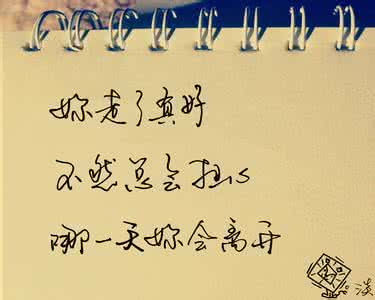 妳走了真好
不然总会担心
哪一天妳会离开
淡